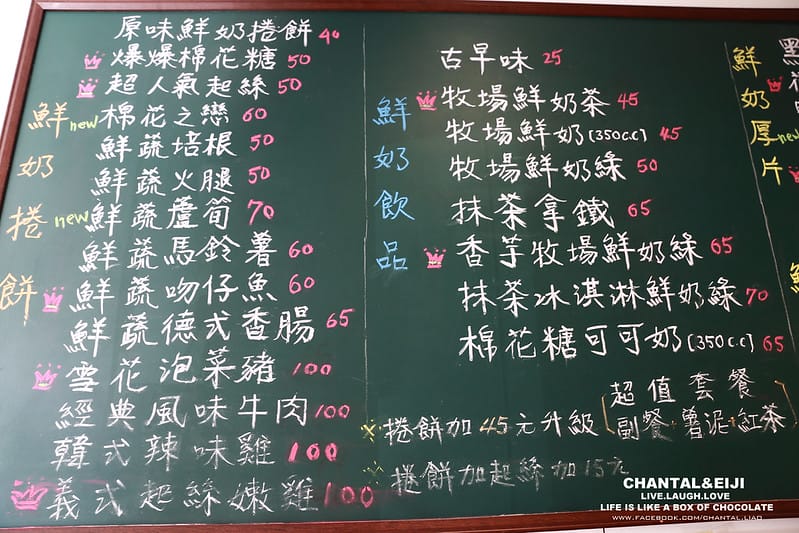 鮮奶捲餅
原味鮮奶捲餅 40
爆爆棉花糖 50
超人氣起絲 50
new 棉花之戀 60
鮮蔬培根 50
鮮蔬火腿 50
new 鮮蔬蘆筍 70
鮮蔬馬鈴薯 60
鮮蔬吻仔魚 60
鮮蔬德式香腸 65
雪花泡菜豬 100
經典風味牛肉 100
韓式辣味雞 100
義式起絲嫩雞 100
鮮奶飲品
古早味 25
牧場鮮奶茶 45
牧場鮮奶(350c.c) 45
牧場鮮奶綠 50
抹茶拿鐵 65
香芋牧場鮮奶綠 65
抹茶冰淇淋鮮奶綠 70
棉花糖可可奶(350c.c) 65
捲餅加45元升級
超值套餐
副餐+薯泥+紅茶
捲餅加起絲加15元
鮮奶厚片
new
鮮
CHANTAL&EIJI
LIVE.LAUGH.LOVE
LIFE IS LIKE A BOX OF CHOCOLATE
WWW.FACEBOOK.COM/CHANTAL.LIAO